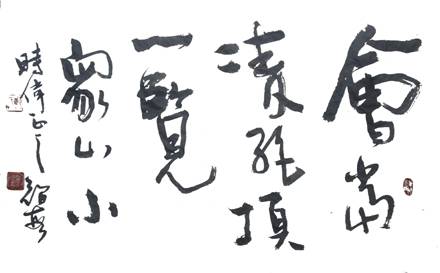 會當
凌絕頂
一覽
眾山小
時偉正之